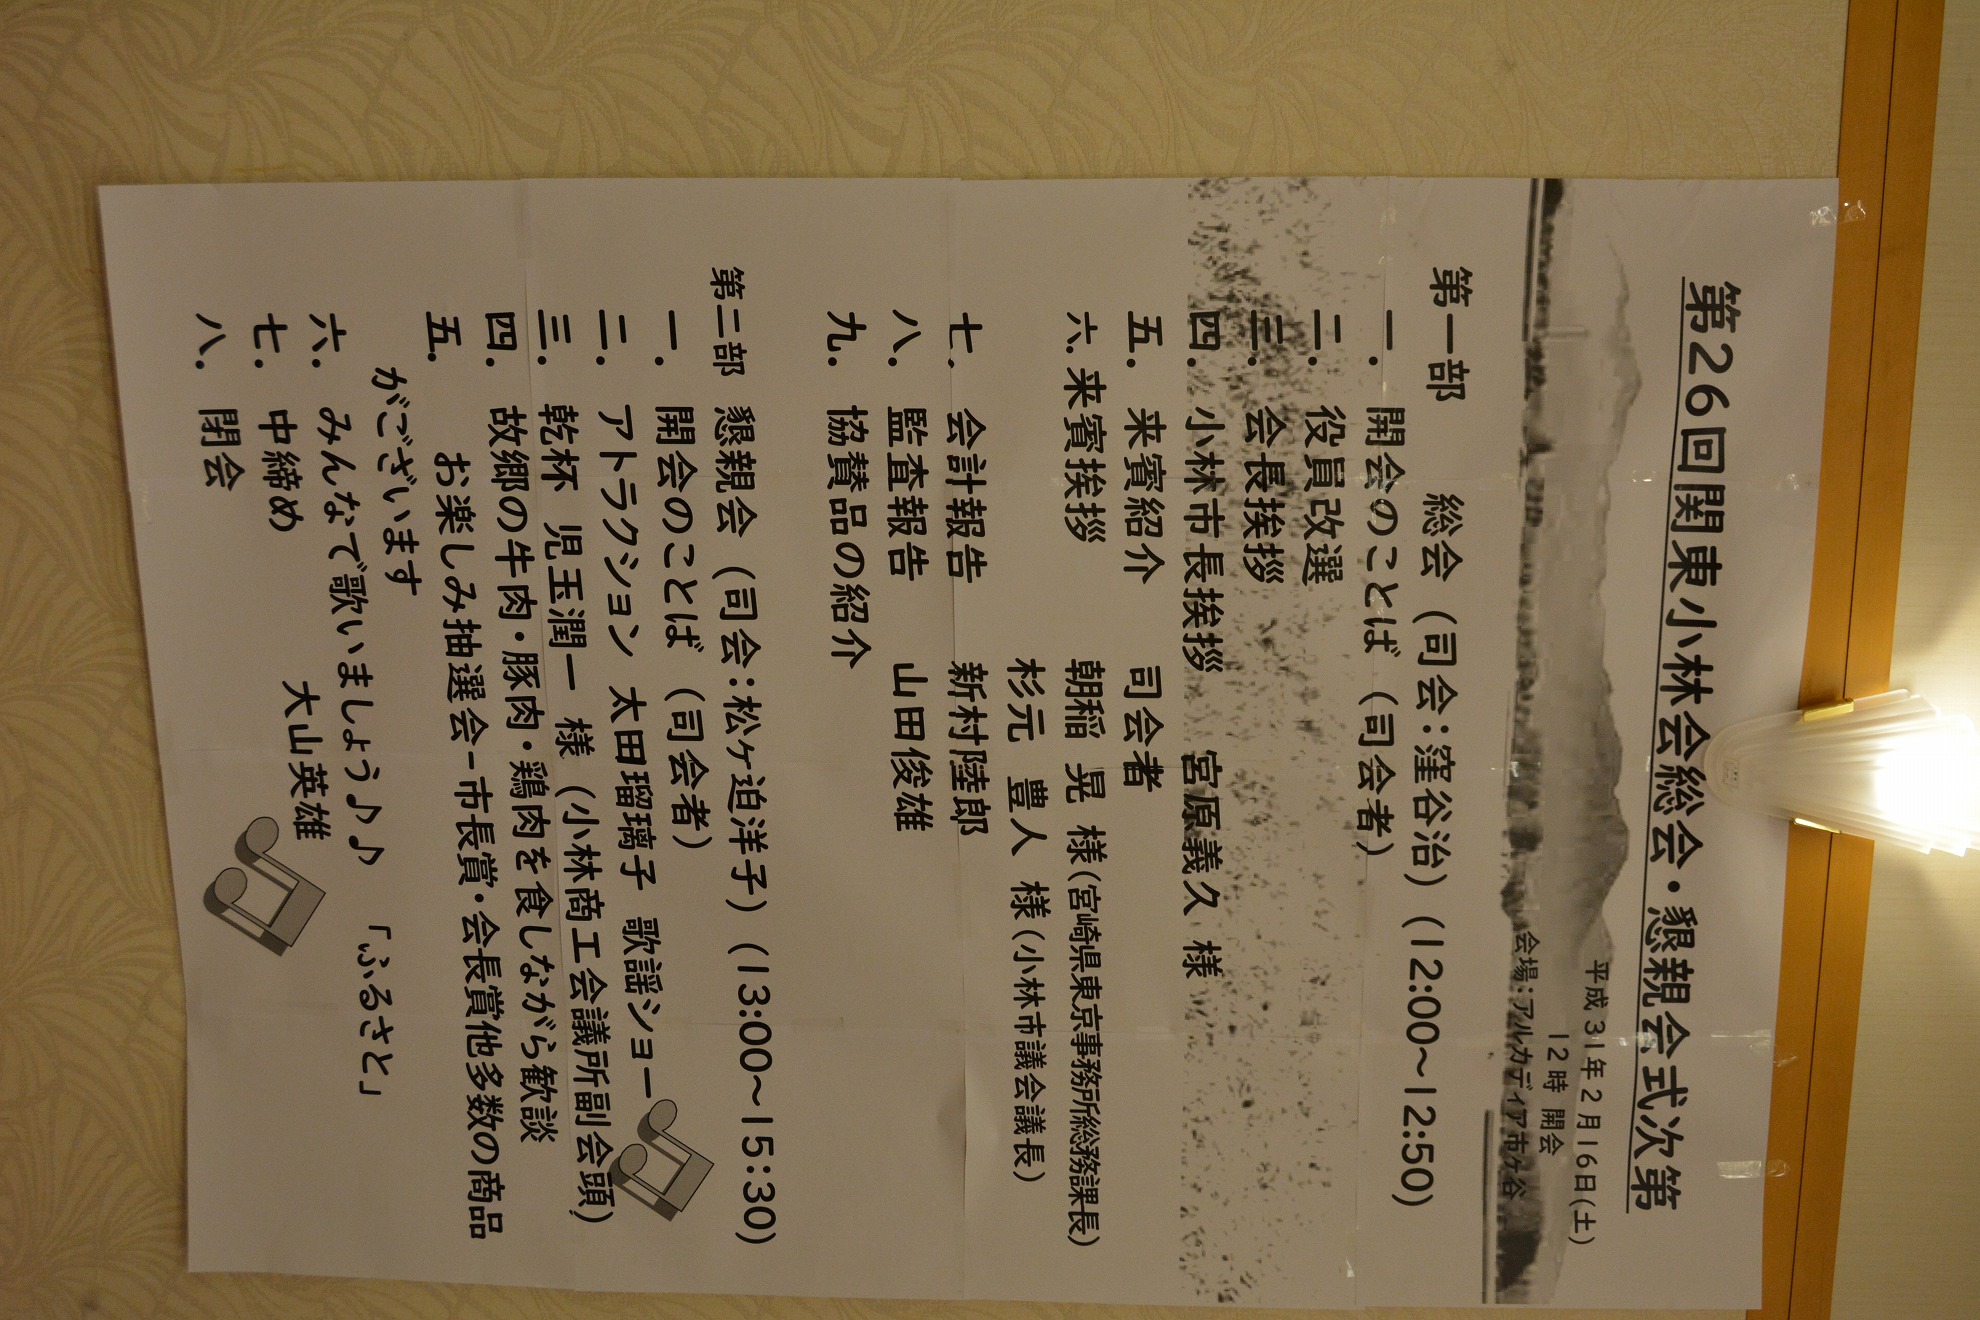 第26回関東小林会総会・懇親会式次第
平成31年2月16日(土)
12時 開会
会場：アルカディア市ヶ谷
第一部 総会（司会：窪谷治）（12:00～12:50）
一． 開会のことば（司会者）
二． 役員改選
三． 会長挨拶
四． 小林市長挨拶 宮原義久 様
五． 来賓紹介 司会者
六．来賓挨拶 朝稲 晃 様（宮崎県東京事務所総務課長）
杉元 豊人 様（小林市議会議長）
七． 会計報告 新村陸郎
八． 監査報告 山田俊雄
九． 協賛品の紹介
第二部 懇親会（司会：松ヶ迫洋子）（13:00～15:30）
一． 開会のことば（司会者）
二． アトラクション 太田瑠璃子 歌謡ショー
三． 乾杯 児玉潤一 様（小林商工会議所副会頭）
四． 故郷の牛肉・豚肉・鶏肉を食しながら歓談
五． お楽しみ抽選会－市長賞・会長賞他多数の商品
がございます
六． みんなで歌いましょう♪♪ 「ふるさと」
七． 中締め 大山英雄
八． 閉会